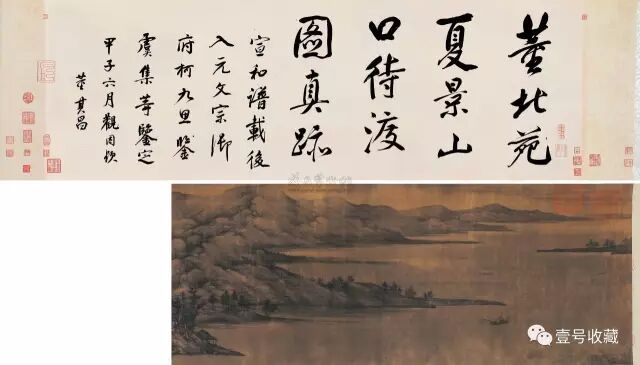 董北苑
夏景山
口待渡
圖真跡
宣和譜載後
入元文宗御
府柯九思鑒
虞集等鑒定
甲子六月觀因題
董其昌
壹号收藏